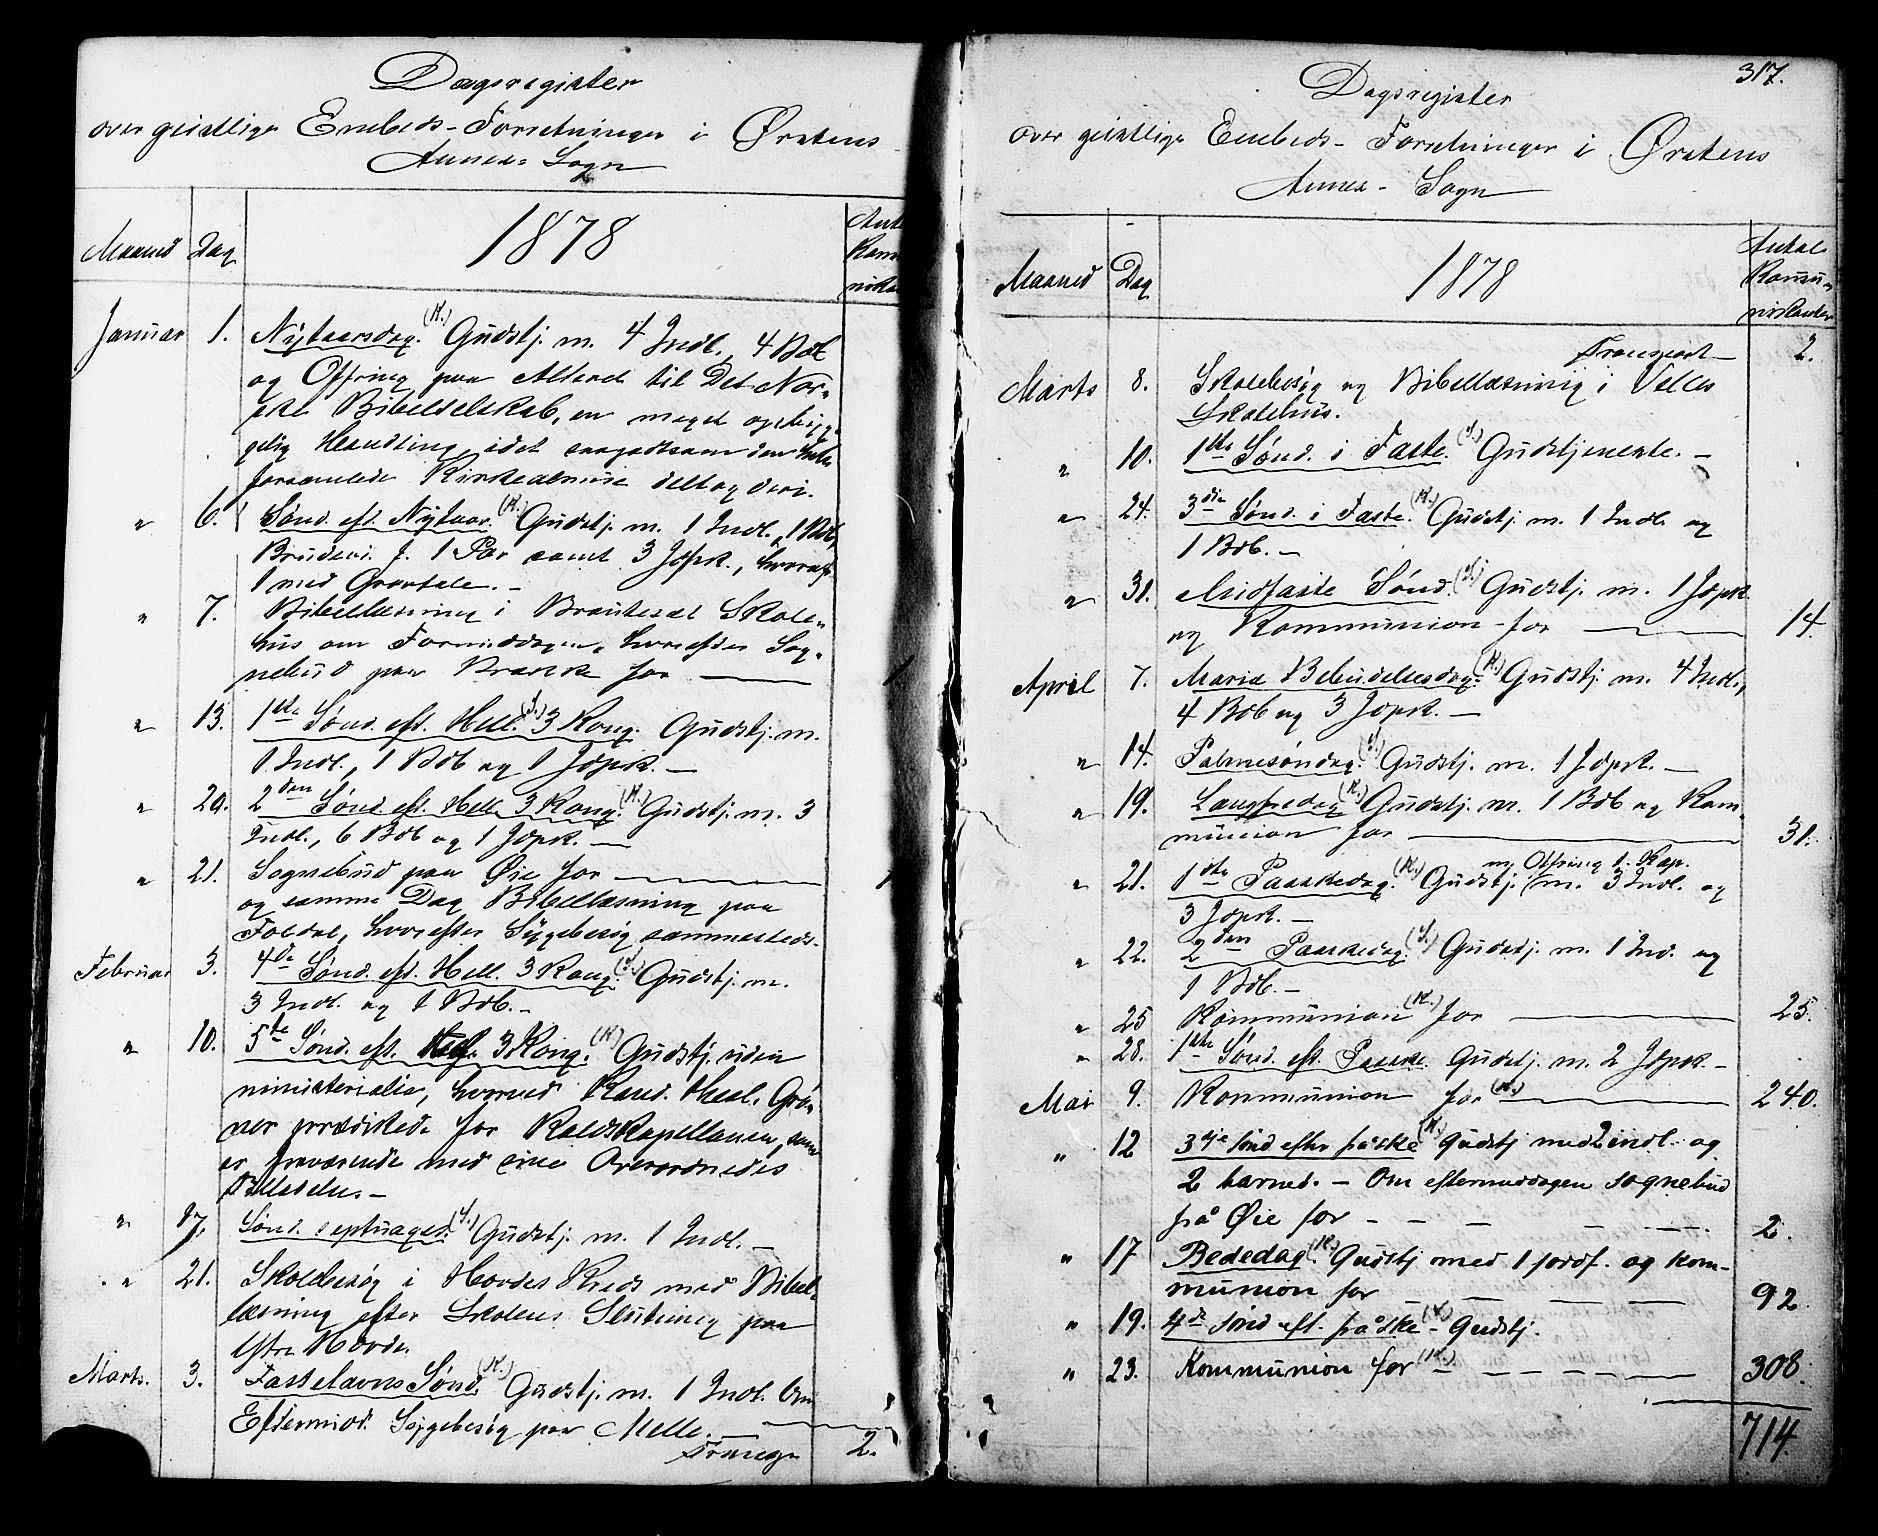 Dagsregister
over geistlige Embeds-Forretninger i Ørstens
Annex-Sogn
Maaned Dag 1878
Januar 1. Nytaarsdag. (K.) Gudstj. m. 4 Indl., 4 Bdb
og Offring paa Alteret til Det Nor-
ske Bibelselskab, en meget opbyg-
gelig Handling, idet saagodtsom den hele
forsamlede Kirkealmue deltog deri.
" 6. Sønd. eft. Nytaar. (K.) Gudstj. m. 1 Indl., 1 Bdb,
Brudevi. f. 1 Par samt 3 Jdpk., hvoraf
1 med Gravtale. -
" 7. Bibellæsning i Brautesæt Skole-
hus om Formiddagen, hvorefter Sog-
nebud paa Brække for 1
" 13. 1ste Sønd. eft. Hell. (S.) 3 Kong. Gudstj. m.
1 Indl., 1 Bdb og 1 Jdpk. -
" 20. 2den Sønd. eft. Hell. 3 Kong. (K.) Gudstj. m. 3
Indl., 6 Bdb og 1 Jdpk. -
" 21. Sognebud paa Øie for 1
og samme Dag Bibellæsning paa
Foldal, hvorefter Sygebesøg sammesteds.
Februar 3. 4de Sønd. eft. Hell. 3 Kong. (S.) Gudstj. m.
3 Indl. og 1 Bdb. -
" 10. 5te Sønd. eft. Hell. 3 Kong. (K.) Gudstj. uden
ministerialia, hvorved Kand. theol. Grø-
ner prædikede for Kaldskapellanen, som
er fraværende med sine Overordnedes
Tilladelse. -
" 17. Sønd. septuages. (S.) Gudstj. m. 1 Indl. -
" 21. Skolebesøg i Hovdes Kreds med Bibel-
læsning efter Skolens Slutning paa
Ytre Hovde.
Marts. 3. FastelavnsSønd. (K.) Gudstj. m. 1 Indl. Om
Eftermidd. Sygebesøg paa Melle. -
Transp. 2.
317.
Dagsregister
over geistlige Embeds-Forretninger i Ørstens
Annex-Sogn
Maaned Dag 1878 Antal
Kommu-
nikanter
Transport 2.
Marts 8. Skolebesøg og Bibellæsning i Velles
Skolehus.
" 10. 1ste Sønd. i Faste. (S.) Gudstjeneste. -
" 24. 3die Sønd. i Faste. (K.) Gudstj. m. 1 Indl. og
1 Bdb. -
" 31. Midfaste Sønd. (S.) Gudstj. m. 1 Jdpk.
og Kommunion for 14.
April 7. Maria Bebudelsesdag. (K.) Gudstj. m. 4 Indl.,
4 Bdb og 3 Jdpk. -
" 14. Palmesøndag. (S.) Gudstj. m. 1 Jdpk. -
" 19. Langfredag (K.) Gudstj. m. 1 Bdb og Kom-
munion for 31.
og Offring t. Kap.
" 21. 1ste Paaskedag. (K.) Gudstj. m. 3 Indl. og
3 Jdpk. -
" 22. 2den Paaskedag. (S.) Gudstj. m. 1 Ind. og
1 Bdb. -
" 25 Kommunion (K.) for 25.
" 28. 1ste Sønd. eft. Paaske Gudstj. m. 2 Jdpk. -
Mai 9. Kommunion for (K.) 240.
" 12 3dje sønd efter påske (K.) Gudstj med 2 indl. og
2 barned. - Om eftermiddagen sognebud
på Øie for 2.
" 17 Bededag (K.) Gudstj med 1 jordf. og kom-
munion for 92.
" 19. 4de sønd eft. påske (K.) - Gudstj.
" 23. Kommunion for (K.) 308.
714.